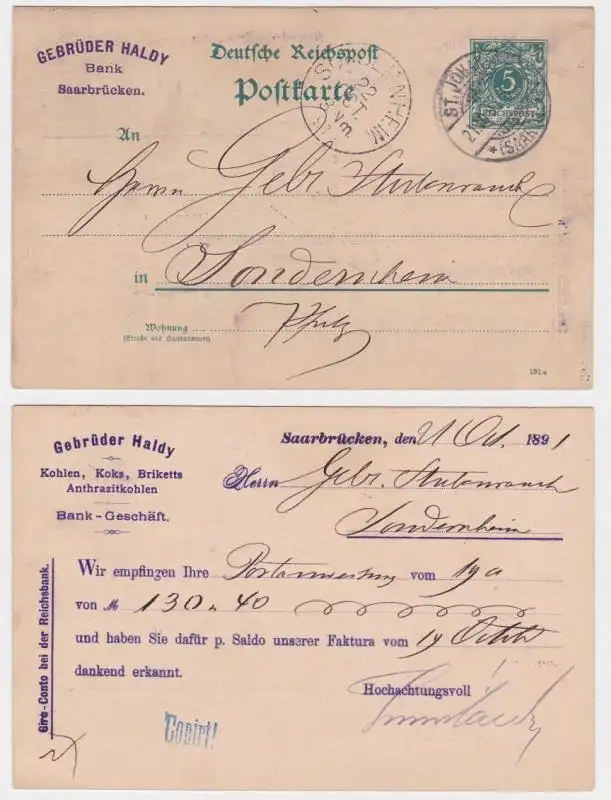 GEBRÜDER HALDY
Bank
Saarbrücken.
Deutsche Reichspost
Postkarte
5
REICHSPOST
ST. JOH
(SAAR
An
Herrn Gebr. Stubenrauch
in Sondernheim
Pfalz
Wohnung
(Straße und Hausnummer)
191a
Gebrüder Haldy
Kohlen, Koks, Briketts
Anthrazitkohlen
Bank-Geschäft.
Giro-Conto bei der Reichsbank.
Saarbrücken, den 21 Oct. 1891
Herrn Gebr. Stubenrauch
Sondernheim
Wir empfingen Ihre Postanweisung vom 19 a
von M 130 . 40
und haben Sie dafür p. Saldo unserer Faktura vom 19
dankend erkannt.
Hochachtungsvoll
Copirt!